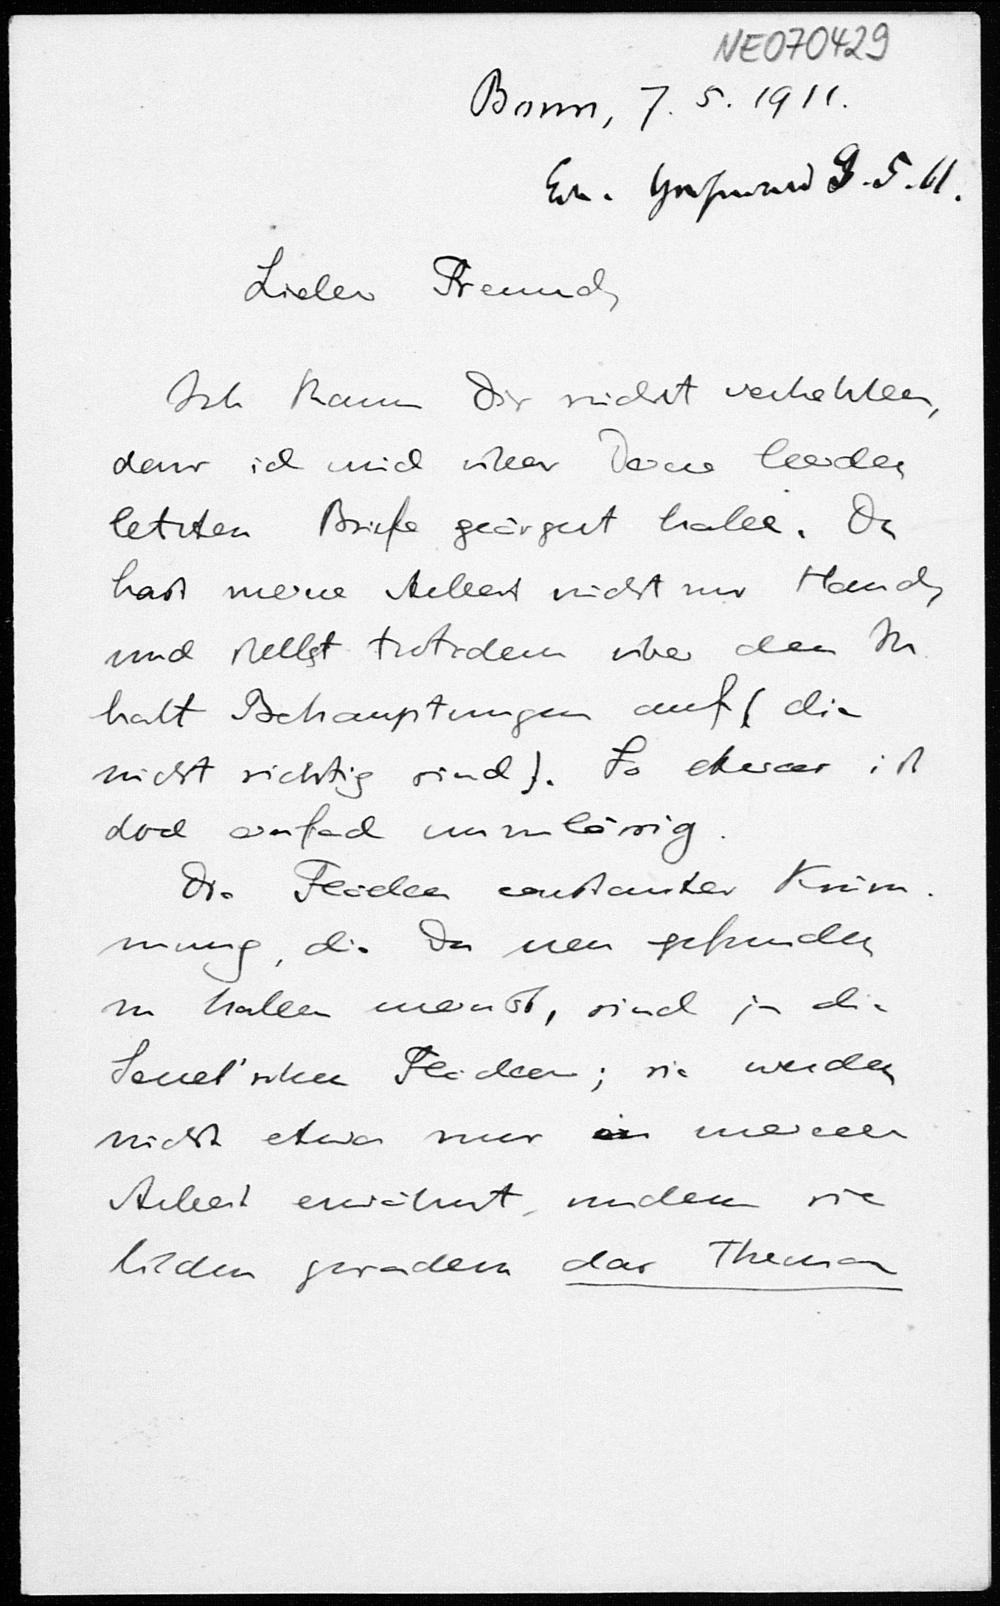 NE070429
Bonn, 7. 5. 1911.
9.5.11.
Lieber Freund,
Ich kann Dir nicht verhehlen,
dass ich mich über Deine beiden
letzten Briefe geärgert habe. Du
hast meine Arbeit nicht zur Hand,
und stellst trotzdem über den In
halt Behauptungen auf (die
nicht richtig sind). So etwas ist
doch einfach unzulässig.
Die Flächen constanter Krüm-
mung, die Du neu gefunden
zu haben meinst, sind ja die
schen Flächen; sie werden
nicht etwa nur in meiner
Arbeit erwähnt, sondern sie
bilden geradezu das Thema